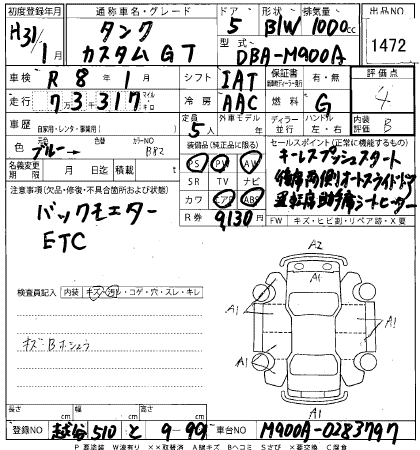 初度登録年月 通称車名・グレード ドア 形状 排気量 出品NO
H31/1月 タンク カスタムGT 5 B/W 1000cc 1472
型式 DBA-M900A
車検 R8年1月 シフト IAT 保証書 有・無 評価点
走行 7万3千317 マイル キロ 冷房 AAC 燃料 G 4
車歴 自家用・レンタ・事業用( ) 定員 5人 外車モデル 年 ディーラー 並行 ハンドル 左・右 内装 B
色 ブルー→ 色替 カラーNO B82
装備品(純正品に限る) セールスポイント(正常に機能するもの)
PS PW AW キーレスプッシュスタート
名義変更期限 月 日 積載 t SR TV ナビ 後席両側オートスライドドア
カワ エアB ABS 運転席助手席シートヒーター
注意事項(欠品・修復・不具合箇所および状態) R券 9,130円 FW キズ・ヒビ割・リペア跡・X要
バックモニター
ETC
検査員記入 内装 キズ・汚レ・コゲ・穴・スレ・キレ
キズBホシュウ
A2
A1
A1
A1
A1
A1
A1
長さ cm 幅 cm 高さ cm
登録NO 越谷 510 と 9-99 車台NO M900A-0283797
P 要塗装 W波有り ××取替済 A線キズ Bヘコミ Sさび ×要交換 C腐食